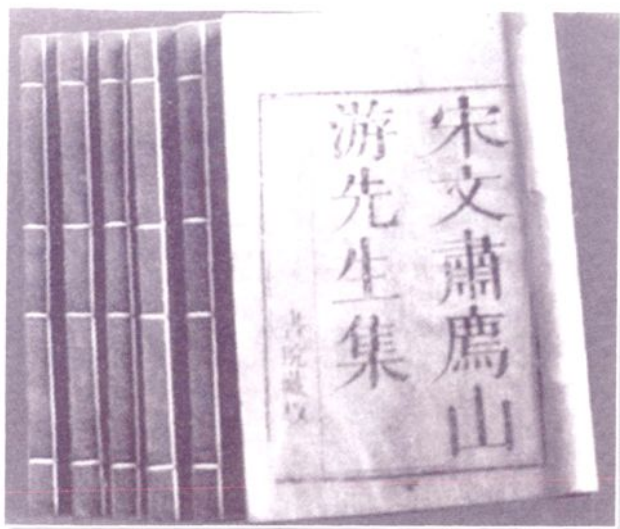 宋文肅廌山
游先生集
書院藏板